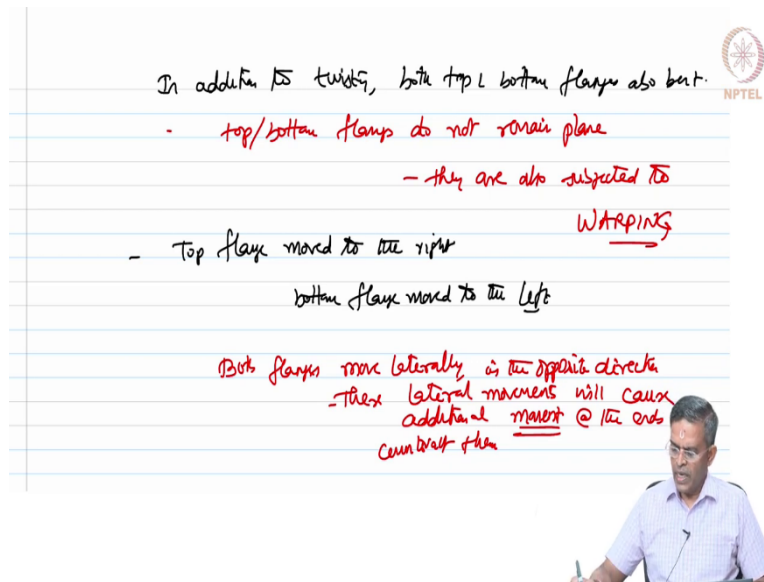 In addition to twisting, both top & bottom flanges also bent.
NPTEL
- top/bottom flanges do not remain plane
- they are also subjected to
WARPING
- Top flange moved to the right
bottom flange moved to the left
Both flanges move laterally in the opposite direction
- These lateral movements will cause
additional moment @ the ends
counteract them